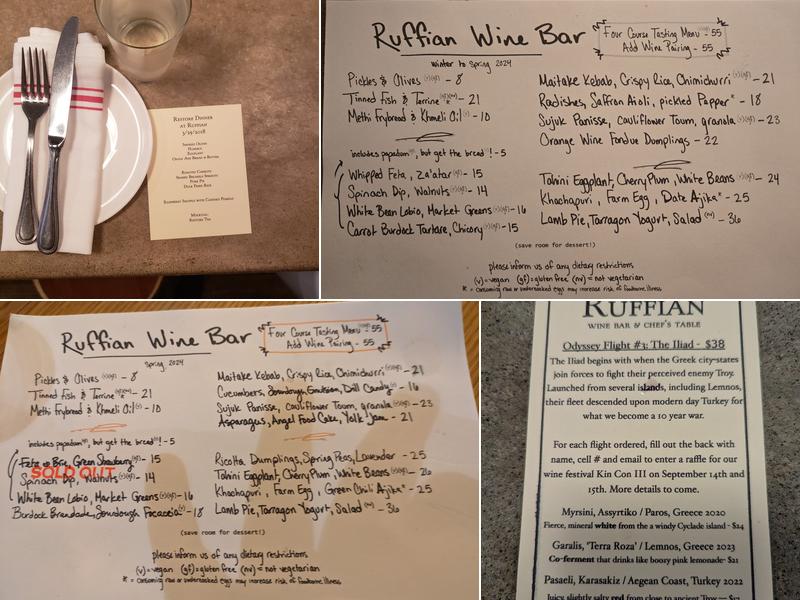 Restore Dinner
at Ruffian
Ruffian Wine Bar
Four Course Tasting Menu - 55
Add Wine Pairing - 55
Winter to Spring 2024
Pickles & Olives (v)(gf) - 8
Tinned Fish & Terrine - 21
Methi Frybread & Khmeli Oil (v) - 10
includes papadam, but get the bread! - 5
Whipped Feta, Za'atar (gf) - 15
Spinach Dip, Walnuts - 14
White Bean Lobio, Market Greens - 16
Carrot Burdock Tartare, Chicory - 15
Maitake Kebab, Crispy Rice, Chimichurri (v)(gf) - 21
Radishes, Saffron Aioli, pickled Pepper* - 18
Sujuk Panisse, Cauliflower Toum, granola (v)(gf) - 23
Orange Wine Fondue Dumplings - 22
Tahini Eggplant, Cherry Plum, White Beans (v)(gf) - 24
Khachapuri, Farm Egg, Date Ajika* - 25
Lamb Pie, Tarragon Yogurt, Salad (nv) - 36
(save room for dessert!)
please inform us of any dietary restrictions
(v) = vegan (gf) = gluten free (nv) = not vegetarian
* = Consuming raw or undercooked eggs may increase risk of foodborne illness
Ruffian Wine Bar
Four Course Tasting Menu - 55
Add Wine Pairing - 55
Spring, 2024
Pickles & Olives (v)(gf) - 8
Tinned Fish & Terrine - 21
Methi Frybread & Khmeli Oil (v) - 10
includes papadam, but get the bread! - 5
Feta & Brie, Green Strawberry (gf) - 15
SOLD OUT
Spinach Dip, Walnuts - 14
White Bean Lobio, Market Greens - 16
Burdock Brandade, Sourdough Focaccia - 18
Maitake Kebab, Crispy Rice, Chimichurri (v)(gf) - 21
Cucumbers, Sourdough Emulsion, Dill Candy - 16
Sujuk Panisse, Cauliflower Toum, granola (v)(gf) - 23
Asparagus, Angel Food Cake, Yolk Jam - 21
Ricotta Dumplings, Spring Peas, Lavender - 25
Tahini Eggplant, Cherry Plum, White Beans (v)(gf) - 26
Khachapuri, Farm Egg, Green Chili Ajika* - 25
Lamb Pie, Tarragon Yogurt, Salad (nv) - 36
(save room for dessert!)
please inform us of any dietary restrictions
(v) = vegan (gf) = gluten free (nv) = not vegetarian
* = Consuming raw or undercooked eggs may increase risk of foodborne illness
RUFFIAN
WINE BAR & CHEF'S TABLE
Odyssey Flight #3: The Iliad - $38
The Iliad begins with when the Greek city-states
join forces to fight their perceived enemy Troy.
Launched from several islands, including Lemnos,
their fleet descended upon modern day Turkey for
what we become a 10 year war.
For each flight ordered, fill out the back with
name, cell # and email to enter a raffle for our
wine festival Kin Con III on September 14th and
15th. More details to come.
Myrsini, Assyrtiko / Paros, Greece 2020
Fierce, mineral white from the a windy Cyclade island - $24
Garalis, 'Terra Roza' / Lemnos, Greece 2023
Co-ferment that drinks like boozy pink lemonade- $21
Pasaeli, Karasakiz / Aegean Coast, Turkey 2022
Juicy slightly salty red from close to ancient Troy